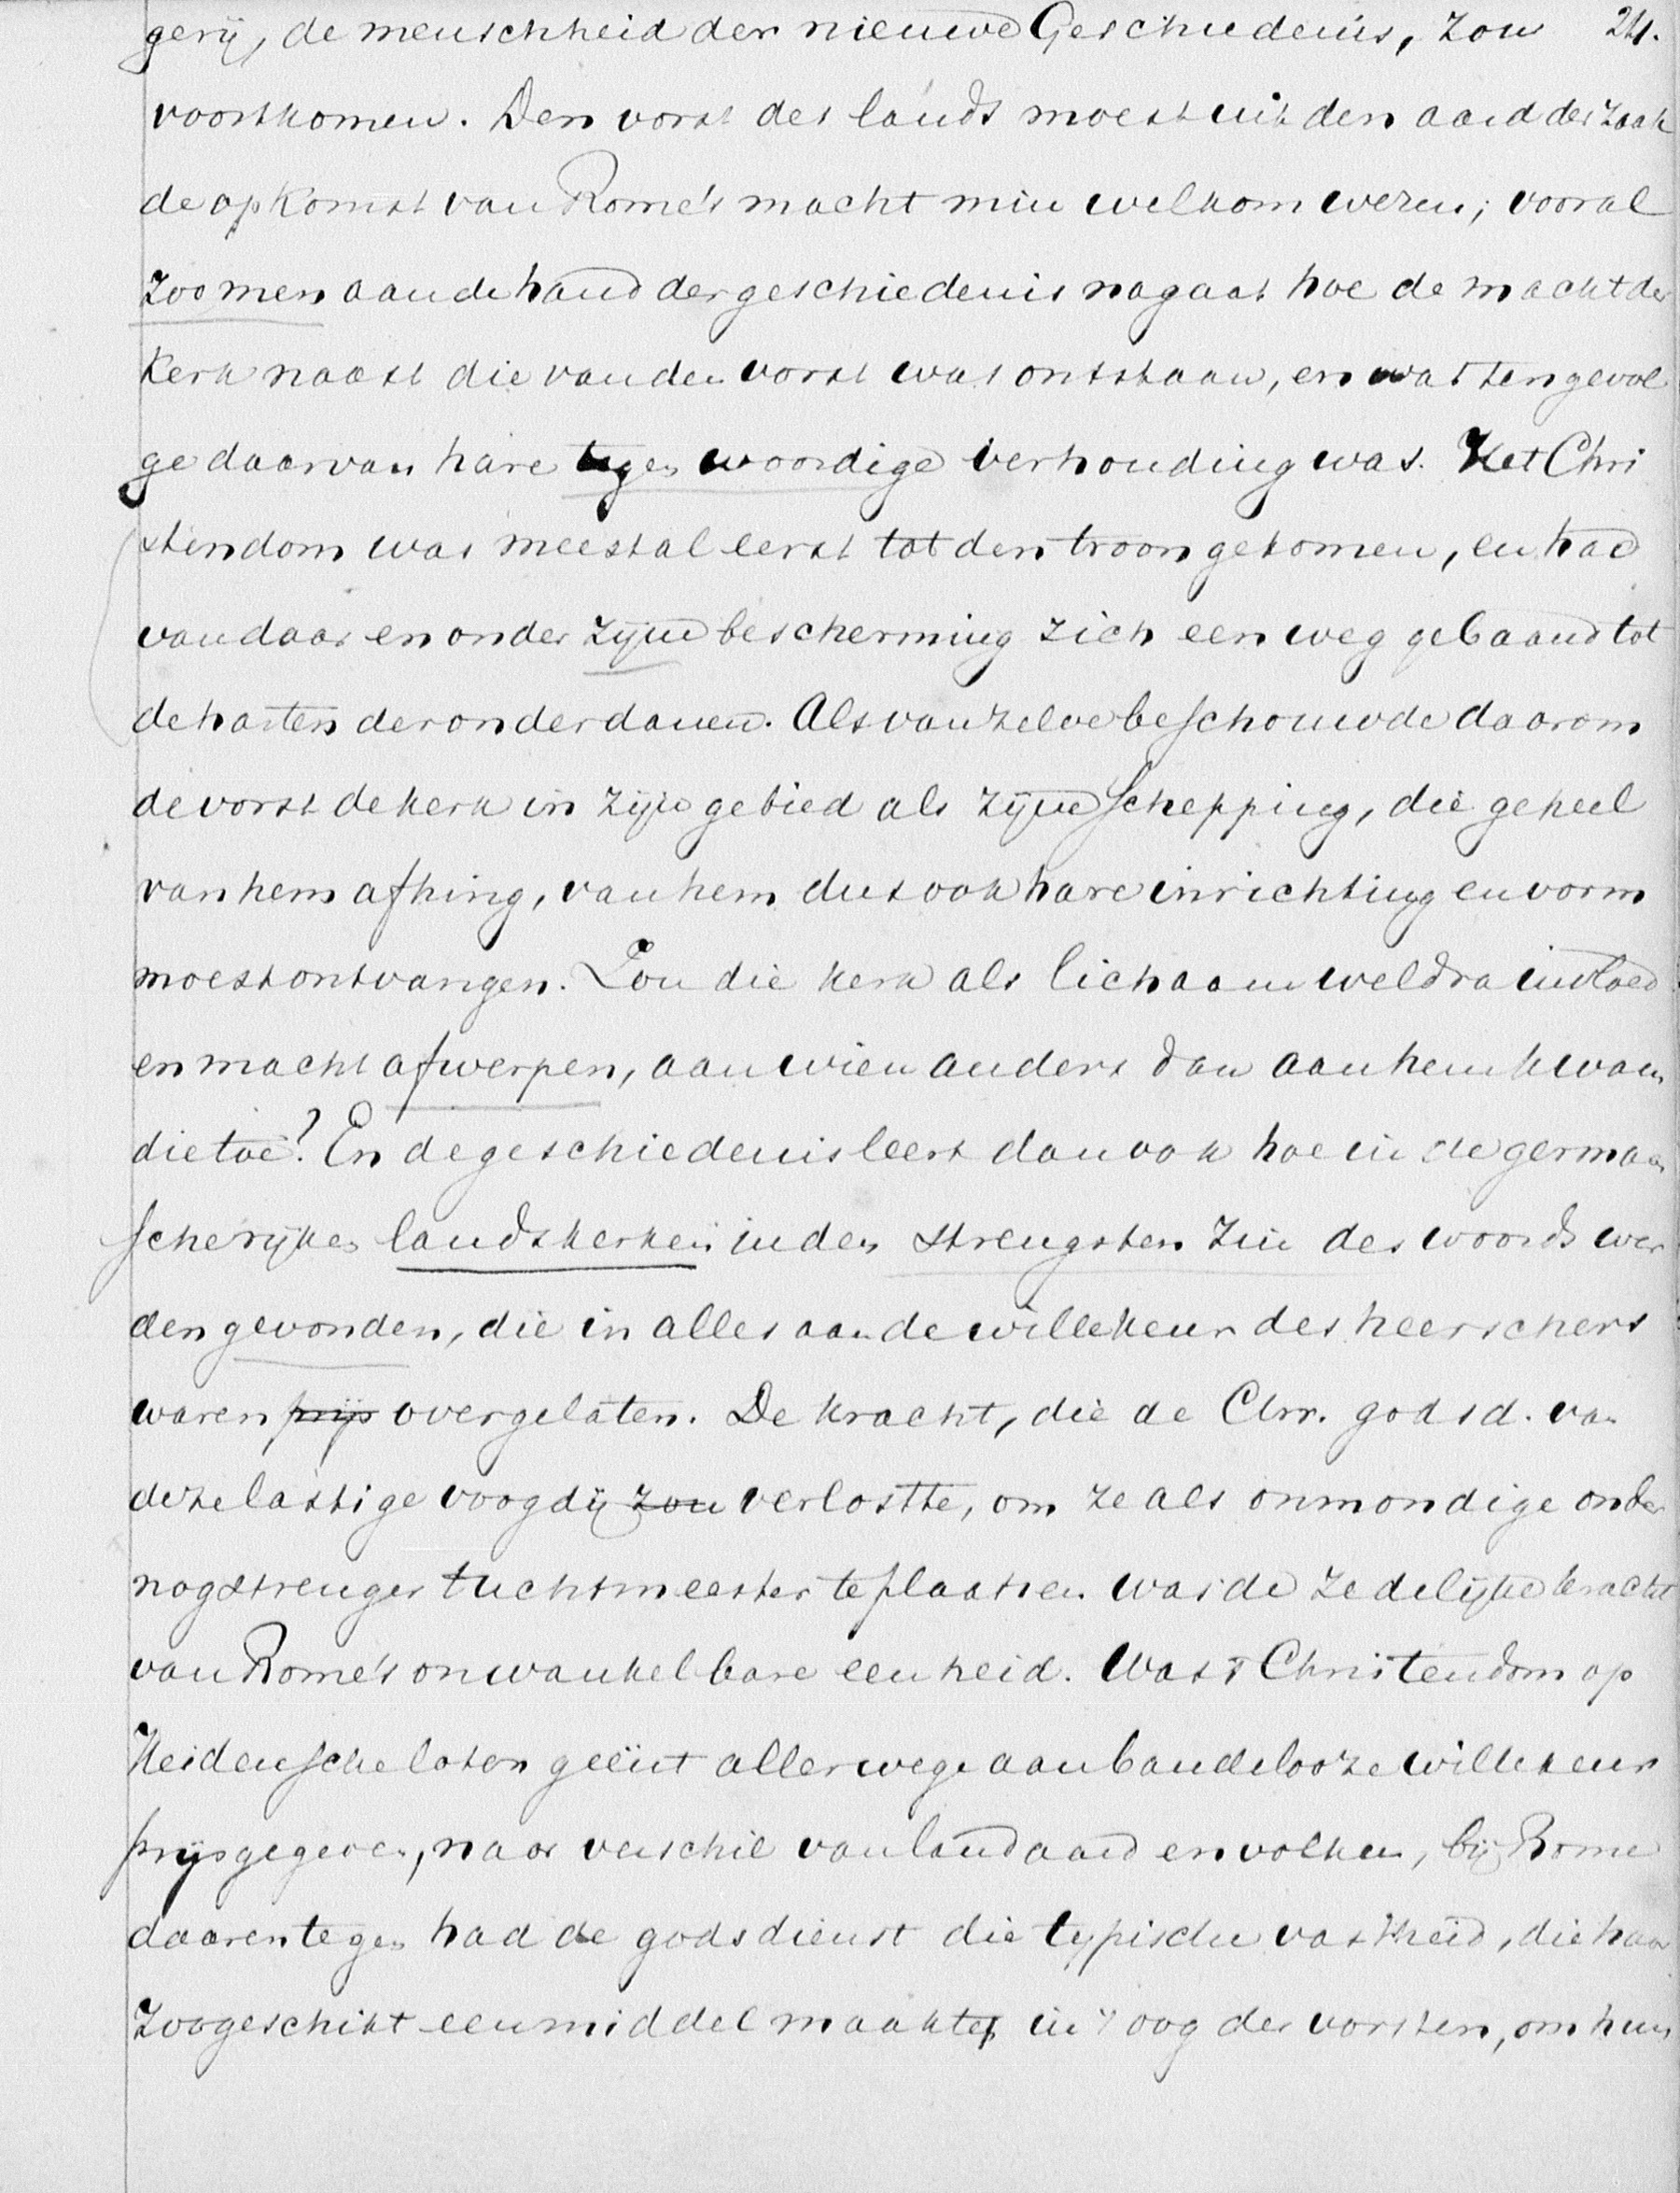 gerij, de menschheid der nieuwe Geschiedenis, zou 24.
voortkomen. Den vorst des lands moest uit den aard der zaak
de opkomst van Rome's macht min welkom wezen; vooral
zoo men aan de hand der geschiedenis nagaat hoe de macht der
Kerk naast die van den vorst was ontstaan, en wat ten gevol
ge daarvan hare tegenwoordige verhouding was. Het Chri
stendom was meestal eerst tot den troon gekomen, en had
van daar en onder zijne bescherming zich een weg gebaand tot
de harten der onderdanen. Als van zelve beschouwde daarom
de vorst de kerk in zijn gebied als zijne schepping, die geheel
van hem afhing, van hem dus ook hare inrichting en vorm
moest ontvangen. Zou die kerk als lichaam weldra invloed
en macht afwerpen, aan wien anders dan aan hem kwam
die toe? En de geschiedenis leert dan ook hoe in de germaan
sche rijken landskerken in den strengsten zin des woords wer
den gevonden, die in alles aan de willekeur des heerschers
waren prijs overgelaten. De kracht, die de Chr. godsd. van
deze lastige voogdij zou verloste, om ze als onmondige onder
nog strenger tuchtmeester te plaatsen was de zedelijke kracht
van Rome's onwankelbare eenheid. Was 't Christendom op
Heidensche loten geënt allerwege aan bandelooze willekeur
prijsgegeven, naar verschil van landaard en volken, bij Rome
daarentegen had de godsdienst die typische vastheid, die haar
zoo geschikt een middel maakte in 't oog der vorsten, om hun